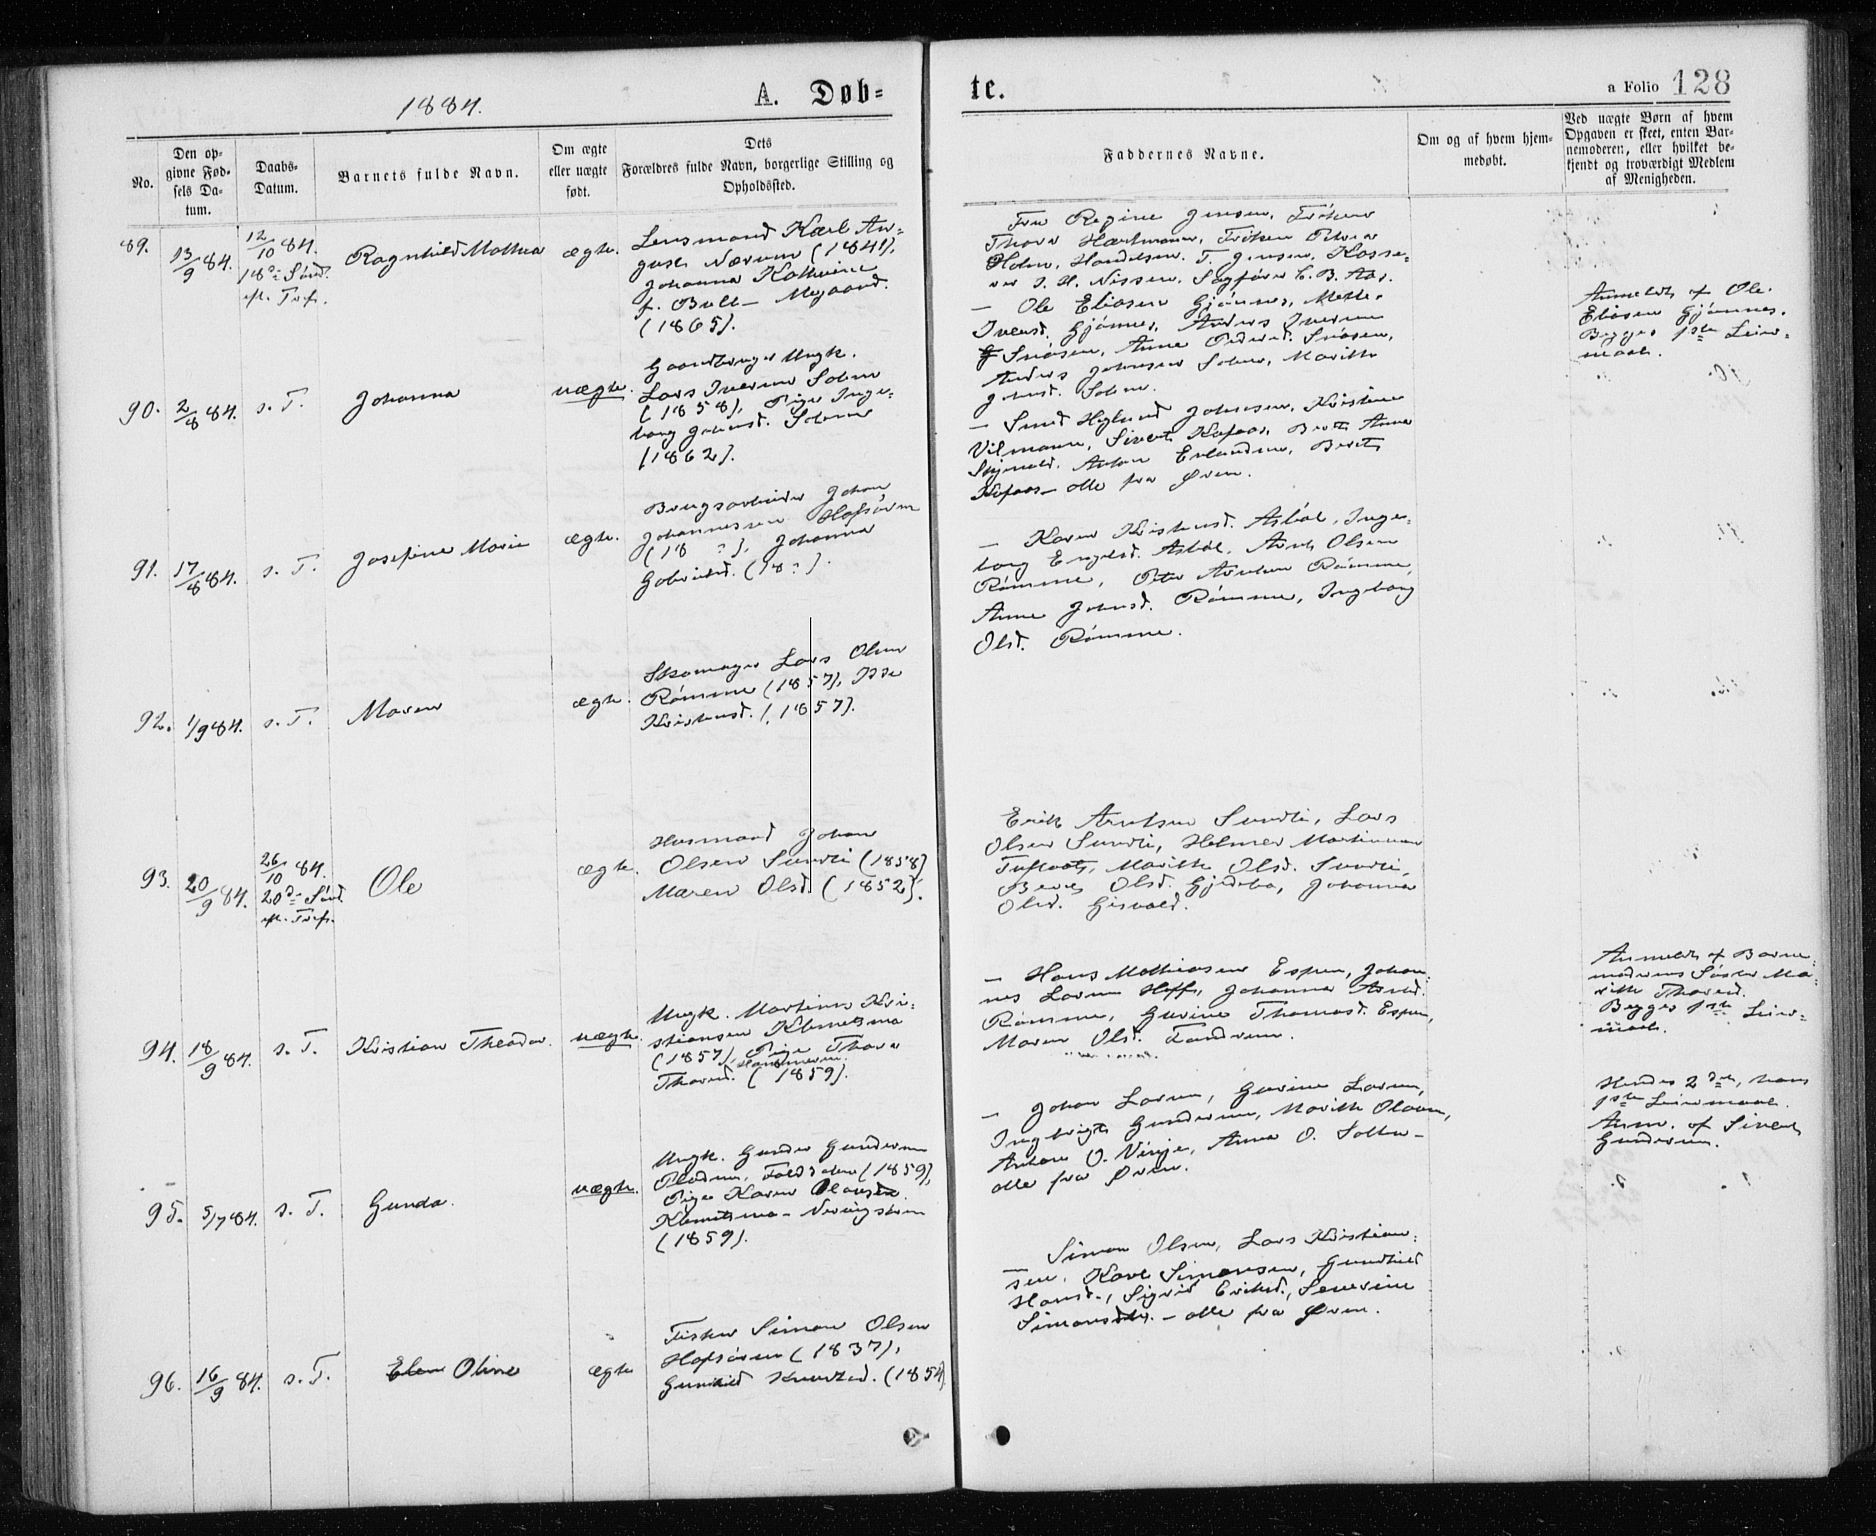 1884.
A. Døb=
te.
a Folio 128
No.
Den op-
givne Fød-
sels Da-
tum.
Daabs-
Datum.
Barnets fulde Navn.
Om ægte
eller uægte
født.
Dets
Forældres fulde Navn, borgerlige Stilling og
Opholdssted.
Faddernes Navne.
Om og af hvem hjem-
medøbt.
Ved uægte Børn af hvem
Opgaven er skeet, enten Bar-
nemoderen, eller hvilket be-
kjendt og troværdigt Medlem
af Menigheden.
89.
13/9 84.
12/10 84.
18de Sønd.
eft. Trefs.
Ragnhild Mathea
ægte.
Lensmand Karl Au-
gust Nærum (1841),
Johanna Kathrine
f. Bull - Megaard.
(1865).
Fru Regine Jensen, Frøken
Thora Hartmann, Frøken Petrea
Holm, Handelsm. T. Jensen, Kasse-
rer J. H. Nissen, Sagfører C. B. Aas.
90.
2/8 84.
s. T.
Johanna
uægte.
Gaardbruger Ungk.
Lars Iversen Solem
(1858), Pige Inge-
borg Johnsd. Solem
(1862).
— Ole Eliasen Gjønnes, Mette
Iversd. Gjønnes, Anders Iversen
Snøsen, Anne Pedersd. Snøsen,
Anders Johnsen Solem, Marith
Johnsd. Solem.
Anmeldt af Ole
Eliasen Gjønnes.
Begges 1ste Leier-
maal.
91.
17/8 84.
s. T.
Josefine Marie
ægte.
Brugsarbeider Johan
Johannessen Hofsøren
(18 ?), Johanna
Gabrielsd. (18 ?).
— Smed Johnsen, Kristine
Vilmann, Sivert Kafaas, Berit Anna
Anton Erlandsen, Berit
Kafaas — alle fra Øren.
92.
1/9 84.
s. T.
Maren
ægte.
Skomager Lars Olsen
Rømme (1857),
Kristensd. (1857).
— Karen Kristensd. Asbøl, Inge-
borg Engelsd. Asbøl, Arnt Olsen
Rømme, Peter Arntsen Rømme,
Anne Johnsd. Rømme, Ingeborg
Olsd. Rømme.
93.
20/9 84.
26/10 84.
20de Sønd.
eft. Trefs.
Ole
ægte.
Husmand Johan
Olsen Sundli (1858)
Maren Olsd. (1852).
Erik Arntsen Sundli, Lars
Olsen Sundli, Helmer Martinsen
Marith Olsd. Sundli,
Berit Olsd. Gjedebo, Johanna
Olsd. Gisvold.
94.
18/9 84.
s. T.
Kristian Theodor
uægte.
Ungk. Martinus Kri-
stiansen Klemetsmo
(1857), Pige Thora
Thoresd. (1859).
— Hans Mathiasen Espen, Johan-
nes Larsen Hoff, Johanna Arntsd.
Rømme, Gurine Thomasd. Espen,
Maren Olsd.
Anmeldt af Barne-
moderens Søster Ma-
rith Thoresd.
Begges 1ste Leier-
maal.
95.
5/7 84.
s. T.
Gunda.
uægte.
Ungk. Gunder Gundersen
(1859),
Pige Karen Olausd.
Klemetsmo -
(1859).
— Johan Larsen, Gurine Larsen,
Ingbrigt Gundersen, Marith Olsen,
Antone O. Vinje, Anna O.
alle fra Øren.
Hendes 2det, hans
1ste Leiermaal.
Anm. af Sivert
Gundersen.
96.
16/9 84.
s. T.
Elen Oline
ægte
Fisker Simon Olsen
Hofsøren (1837),
Gunhild Knudsd. (1854)
— Simon Olsen, Lars Kristian-
sen, Karl Simonsen, Gunhild
Hansd., Sigrid Eriksd., Severine
Simonsdtr. — alle fra Øren.